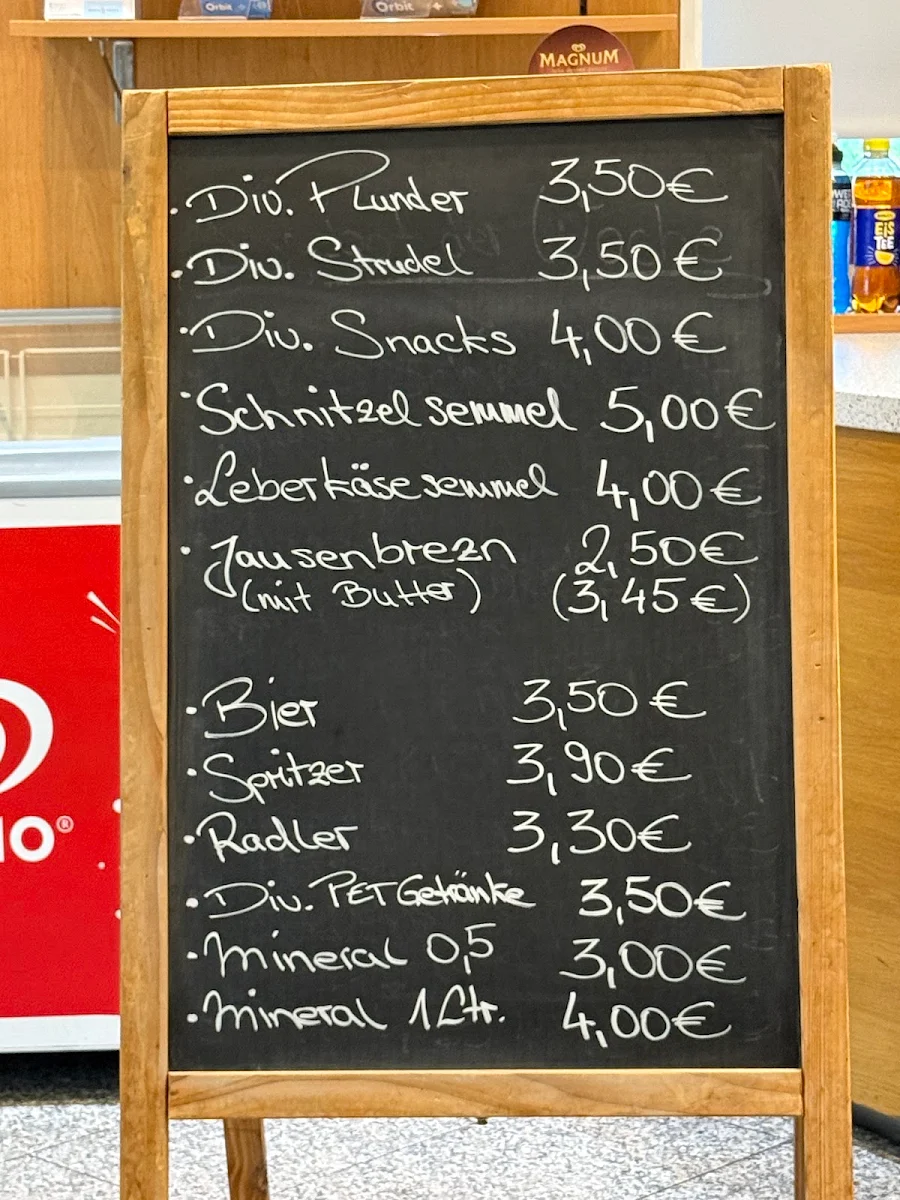 Orbit
Orbit
MAGNUM
· Div. Plunder 3,50€
· Div. Strudel 3,50€
· Div. Snacks 4,00€
· Schnitzelsemmel 5,00€
· Leberkäsesemmel 4,00€
· Jausenbrezn 2,50€
(mit Butter) (3,45€)
· Bier 3,50€
· Spritzer 3,90€
· Radler 3,30€
· Div. PET Getränke 3,50€
· Mineral 0,5 3,00€
· Mineral 1 Ltr. 4,00€
EIS
TEE